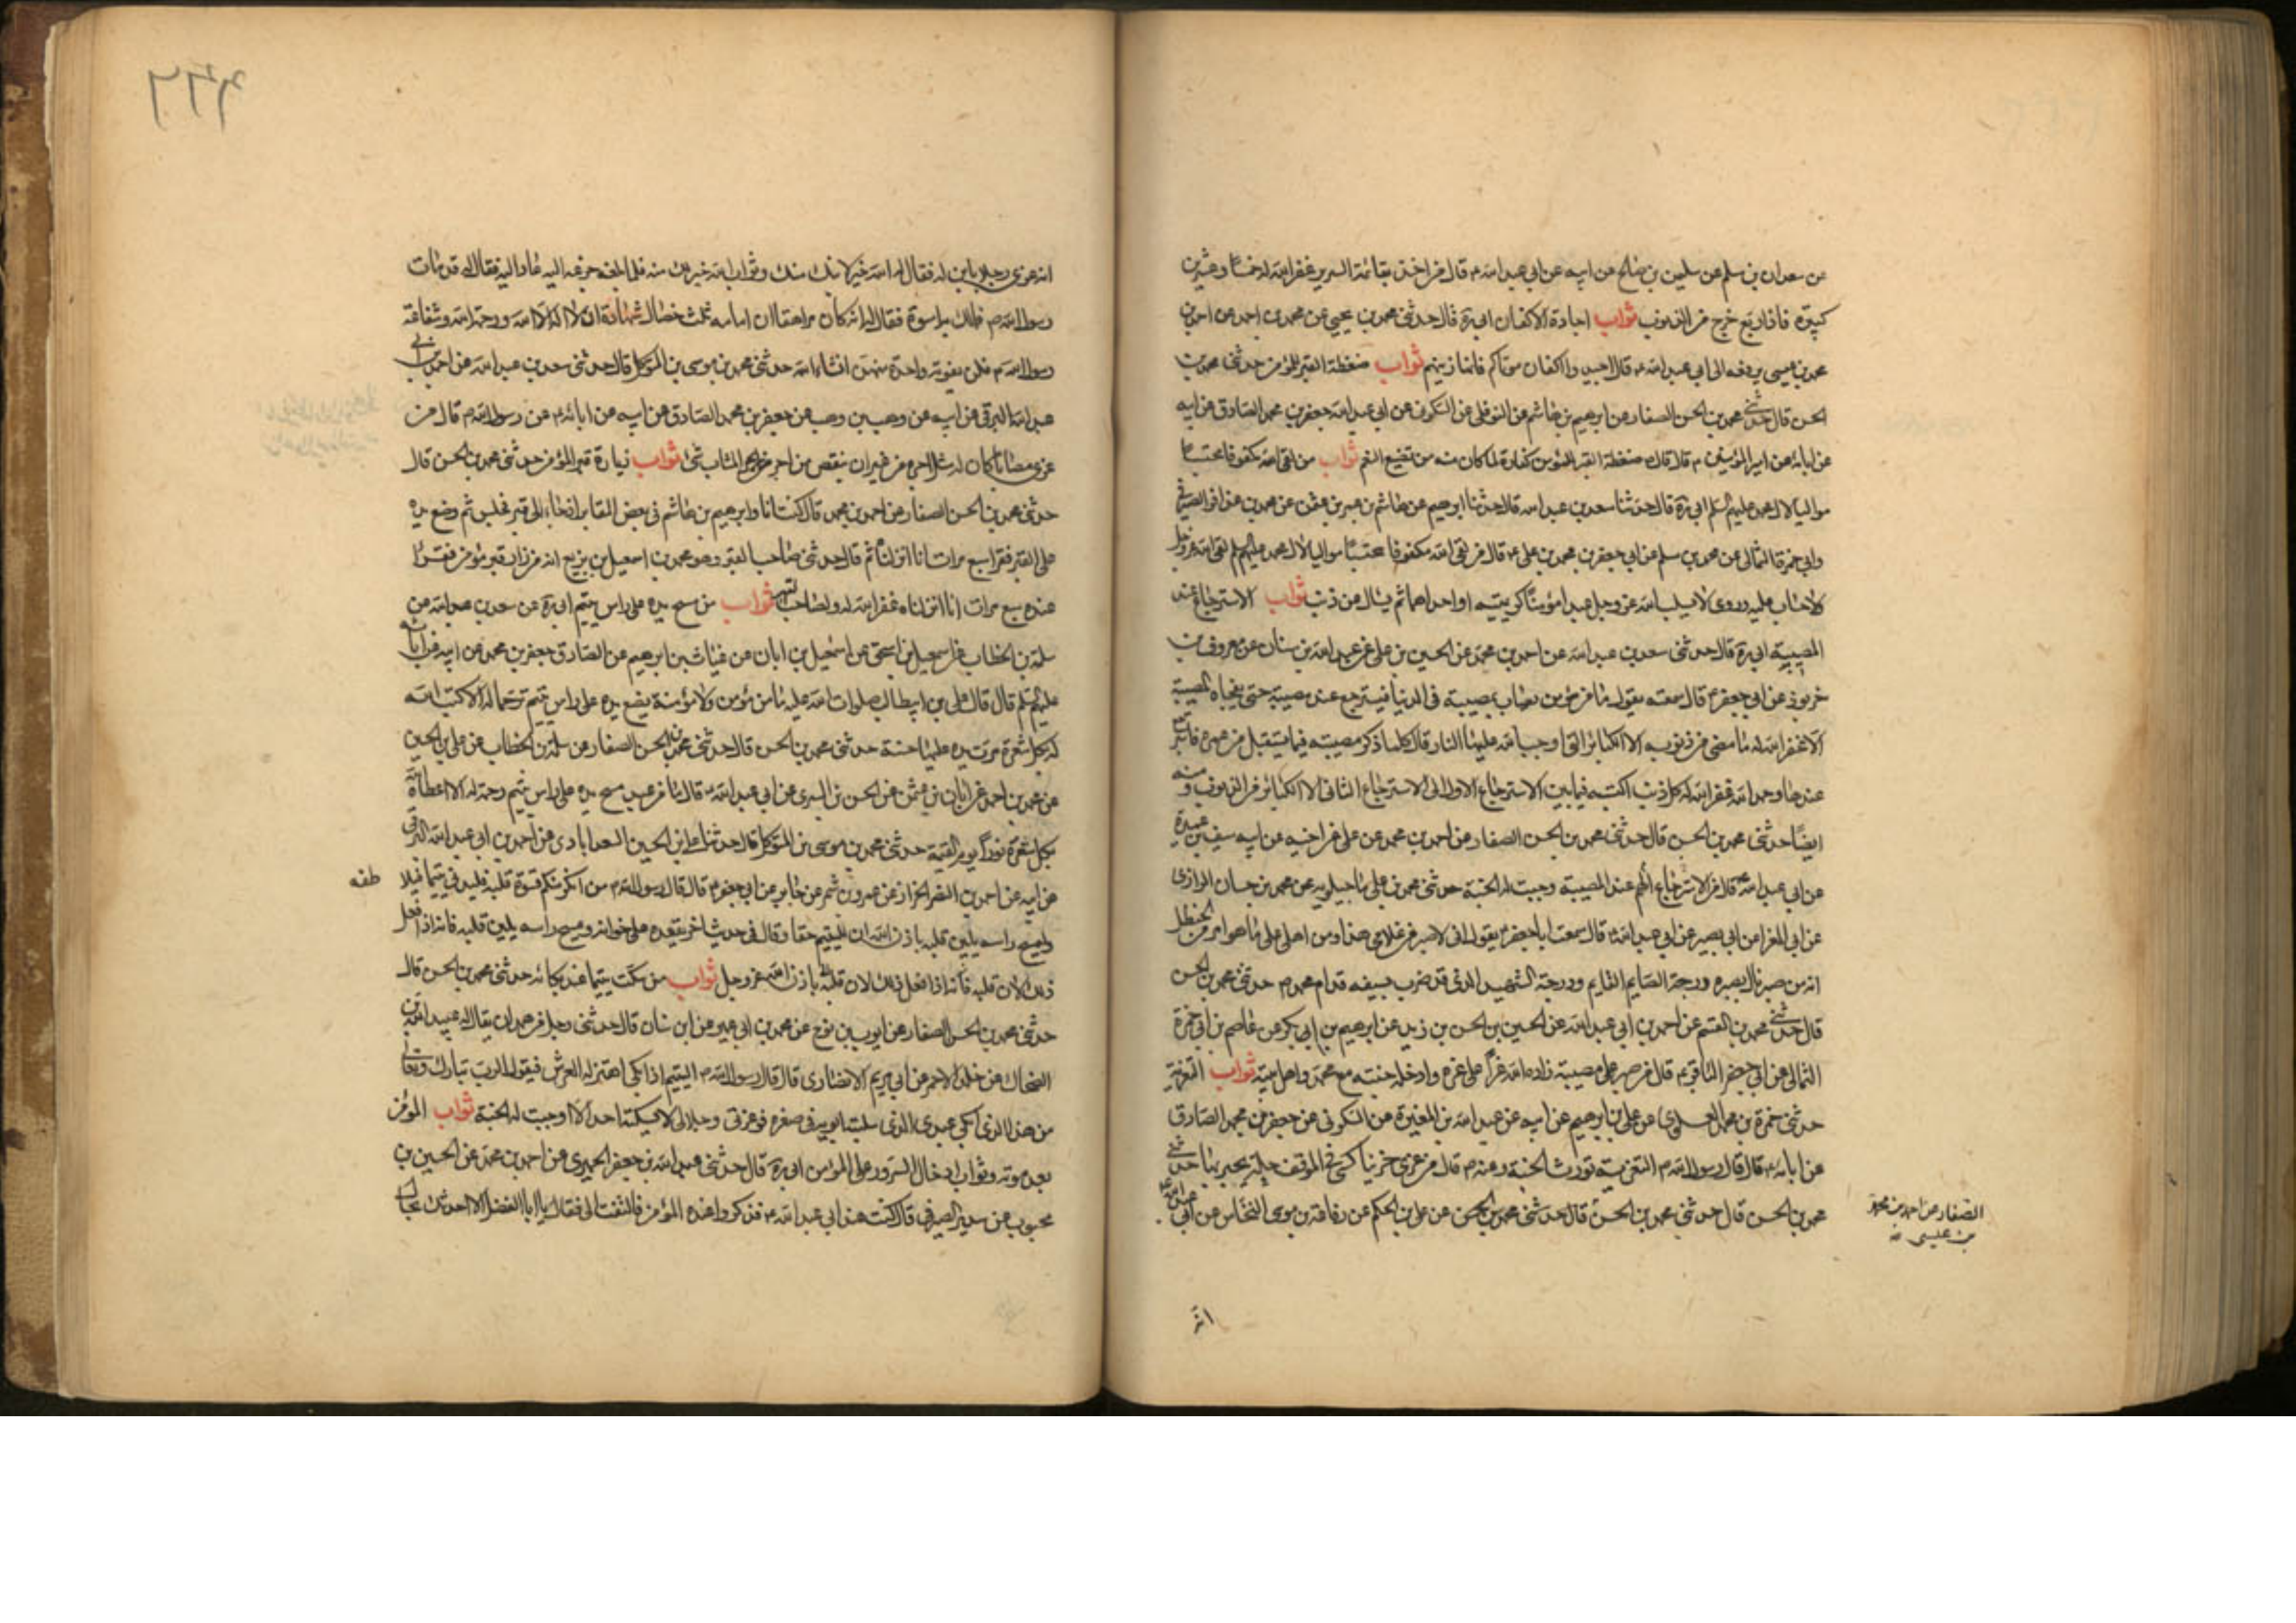 عن سعدان بن مسلم عن سليمن بن صالح عن ابيه عن ابي عبد الله ع قال من اخذ بقائمة السرير غفر الله له خمسا وعشرين
كبيرة فاذا ربع خرج من الذنوب ثواب اجادة الاكفان ابي ره قال حدثني محمد بن يحيى عن محمد بن احمد عن احمد بن
محمد بن عيسى يرفعه الى ابي عبد الله ع قال اجيدوا اكفان موتاكم فانها زينتهم ثواب ضغطة القبر للمؤمن حدثني محمد بن
الحسن قال حدثني محمد بن الحسن الصفار عن ابرهيم بن هاشم عن النوفلي عن السكوني عن ابي عبد الله جعفر بن محمد الصادق عن ابيه
عن ابائه عن امير المؤمنين ع قال قال ضغطة القبر للمؤمن كفارة لما كان منه من تضييع النعم ثواب من لقي الله مكفوفا محتسبا
مواليا لال محمد عليهم السلم ابي ره قال حدثنا سعد بن عبد الله قال حدثنا ابرهيم عن هاشم بن
وابي حمزة الثمالي عن محمد بن مسلم عن ابي جعفر بن محمد بن علي ع قال من لقي الله مكفوفا محتسبا مواليا لال محمد عليهم السلم لقي الله عز وجل
لا حساب عليه وروي لا يسلب الله عز وجل عبدا مؤمنا كريمتيه او احداهما ثم يسال عن ذنب ثواب الاسترجاع عند
المصيبة ابي ره قال حدثني سعد بن عبد الله عن احمد بن محمد عن الحسين بن علي عن عبد الله بن سنان عن معروف بن
خربوذ عن ابي جعفر ع قال سمعته يقول ما من مؤمن يصاب بمصيبة في الدنيا فيسترجع عند مصيبته حتى تفجاه المصيبة
الا غفر الله له ما مضى من ذنوبه الا الكبائر التي اوجب الله عليها النار قال كلما ذكر مصيبته فيما يستقبل من عمره فاسترجع
عندها وحمد الله غفر الله له كل ذنب اكتسبه فيما بين الاسترجاع الاول الى الاسترجاع الثاني الا الكبائر من الذنوب ومنه
ايضا حدثني محمد بن الحسن قال حدثني محمد بن الحسن الصفار عن احمد بن محمد عن علي عن اخيه عن ابيه سيف بن عميرة
عن ابي عبد الله ع قال من الاسترجاع عند المصيبة وجبت له الجنة حدثني محمد بن علي ماجيلويه عن محمد بن حسان الرازي
عن ابي المغرا عن ابي بصير عن ابي عبد الله ع قال سمعت ابا جعفر ع يقول اني لاصبر من غلامي هذا ومن اهلي على ما هو امر من الحنظل
انه من صبر نال بصبره درجة الصايم القايم ودرجة الشهيد الذي قد ضرب بسيفه قدام محمد ص حدثني محمد بن الحسن
قال حدثني محمد بن القسم عن احمد بن ابي عبد الله عن الحسين بن الحسن بن زيد عن ابرهيم بن ابي بكر عن عاصم بن ابي حمزة
الثمالي عن ابي جعفر الباقر ع قال من صبر على مصيبة زاده الله عزا على عزه وادخله جنته مع محمد واهل بيته ثواب التعزية
حدثني حمزة بن محمد العلوي عن علي بن ابرهيم عن ابيه عن عبد الله بن المغيرة عن السكوني عن جعفر بن محمد الصادق
عن ابائه ع قال قال رسول الله ص التعزية تورث الجنة وعنه ص قال من عزى حزينا كسي في الموقف حلة يحبر بها حدثني
محمد بن الحسن قال حدثني محمد بن الحسن قال حدثني محمد بن الحسن عن علي بن الحكم عن رفاعة بن موسى النخاس عن ابي عبد الله ع
الصفار عن احمد بن محمد
بن عيسى
انه
انه عزى رجلا بابن له فقال له الله خير لابنك منك وثواب الله خير لك منه فلما بلغه جزعه اليه عاد اليه فقال له قد مات
رسول الله ص فمالك به اسوة فقال له انه كان مراهقا ان امامه ثلث خصال شهادة ان لا اله الا الله ورحمة الله وشفاعة
رسول الله ص فلن يفوته واحدة منهن انشاء الله حدثني محمد بن موسى بن المتوكل قال حدثني سعد بن عبد الله عن احمد بن ابي
عبد الله البرقي عن ابيه عن وهب بن وهب عن جعفر بن محمد الصادق عن ابيه عن ابائه ع عن رسول الله ص قال من
عزى مصابا كان له مثل اجره من غير ان ينقص من اجر المصاب شيء ثواب زيارة قبر المؤمن حدثني محمد بن الحسن قال
حدثني محمد بن الحسن الصفار عن احمد بن محمد قال كنت انا وابرهيم بن هاشم في بعض المقابر اذ جاء الى قبر فجلس ثم وضع يده
على القبر فقرا سبع مرات انا انزلناه ثم قال حدثني صاحب القبر وهو محمد بن اسمعيل بن بزيع انه من زار قبر مؤمن فقرا
عنده سبع مرات انا انزلناه غفر الله له ولصاحب القبر ثواب من مسح يده على راس يتيم ابي ره عن سعد بن عبد الله عن
سلمة بن الخطاب عن اسمعيل بن اسحق عن اسمعيل بن ابان عن غياث بن ابرهيم عن الصادق جعفر بن محمد عن ابيه عن ابائه
عليهم السلم قال قال علي بن ابيطالب صلوات الله عليه ما من مؤمن ولا مؤمنة يضع يده على راس يتيم ترحما له الا كتب الله
له بكل شعرة مرت يده عليها حسنة حدثني محمد بن الحسن قال حدثني محمد بن الحسن الصفار عن سلمة بن الخطاب عن علي بن الحسين
عن محمد بن احمد عن ابان بن عثمن عن الحسن بن السري عن ابي عبد الله ع قال ما من عبد مسح يده على راس يتيم رحمة له الا اعطاه الله
بكل شعرة نورا يوم القيمة حدثني محمد بن موسى بن المتوكل قال حدثنا علي بن الحسين السعدابادي عن احمد بن ابي عبد الله البرقي
عن ابيه عن احمد بن النضر الخزاز عن عمرو بن شمر عن جابر عن ابي جعفر ع قال قال رسول الله ص من انكر منكم قسوة قلبه فليدن يتيما فيلا
طفه
وليمسح راسه يلين قلبه باذن الله ان لليتيم حقا وقال في حديث اخر يقعده على خوانه ويمسح راسه يلين قلبه فانه اذا فعل
ذلك لان قلبه فانه اذا فعل ذلك لان قلبه باذن الله عز وجل ثواب من سكت يتيما عند بكائه حدثني محمد بن الحسن قال
حدثني محمد بن الحسن الصفار عن ايوب بن نوح عن محمد بن ابي عمير عن ابن سنان قال حدثني رجل من همدان يقال له عبيد الله بن
الضحاك عن خالد الاحمر عن ابي مريم الانصاري قال قال رسول الله ص اليتيم اذا بكى اهتز له العرش فيقول الرب تبارك وتعالى
من هذا الذي ابكى عبدي الذي سلبته ابويه في صغره فوعزتي وجلالي لا يسكته احد الا اوجبت له الجنة ثواب المؤمن
بعد موته وثواب ادخال السرور على المؤمن ابي ره قال حدثني عبد الله بن جعفر الحميري عن احمد بن محمد عن الحسين بن
محبوب عن سدير الصيرفي قال كنت عند ابي عبد الله ع فذكروا عنده المؤمن فالتفت الي فقال يا ابا الفضل الا احدثك بحال